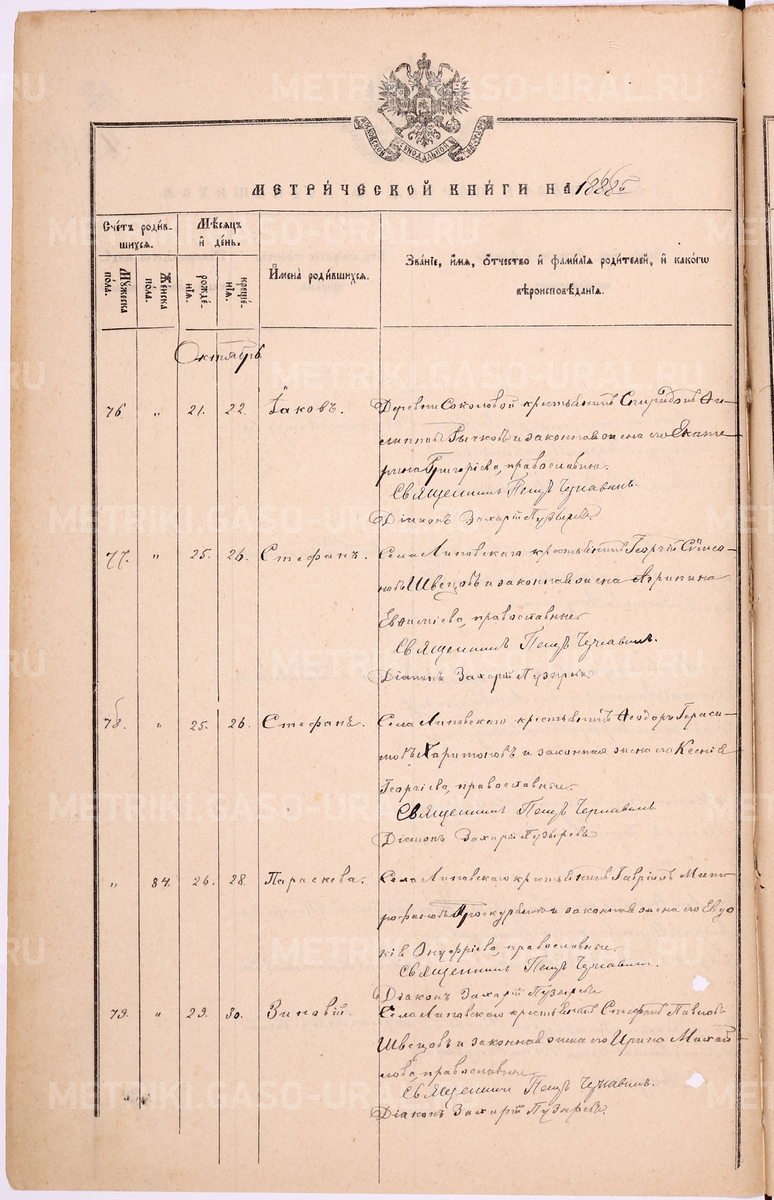 МЕТРИЧЕСКОЙ КНИГИ НА 1888й
Счетъ родив-
шихся.
Мѣсяцъ
и день.
Мужеска
пола.
Женска
пола.
рожде-
нія.
креще-
нія.
Имена родившихся.
Званіе, имя, отчество и фамилія родителей, и какого
вѣроисповѣданія.
Октябрь
76. " 21. 22. Іаковъ. Деревни Соколовой крестьянинъ Спиридонъ Фи-
липповъ Рычковъ и законная жена его Екате-
рина Григоріева, православные.
Священникъ Петръ Чернавинъ.
Діаконъ Захарій Пузыревъ.
77. " 25. 26. Стефанъ. Села Липовскаго крестьянинъ Георгій Симео-
новъ Швецовъ и законная жена Агрипина
Евфиміева, православные.
Священникъ Петръ Чернавинъ.
Діаконъ Захарій Пузыревъ.
78. " 25. 26. Стефанъ. Села Липовскаго крестьянинъ Феодоръ Гераси-
мовъ Харитоновъ и законная жена его Ксенія
Георгіева, православные.
Священникъ Петръ Чернавинъ
Діаконъ Захарій Пузыревъ
" 84. 26. 28. Параскева. Села Липовскаго крестьянинъ Гавріилъ Мит-
рофановъ и законная жена его Евдо
кія Онуфріева, православные.
Священникъ Петръ Чернавинъ.
Діаконъ Захарій Пузыревъ
79. " 29. 30. Зиновій. Села Липовскаго крестьянинъ Стефанъ Павловъ
Швецовъ и законная жена его Ирина Михай
лова, православные.
Священникъ Петръ Чернавинъ.
Діаконъ Захарій Пузыревъ.
METRIKI.GASO-URAL.RU